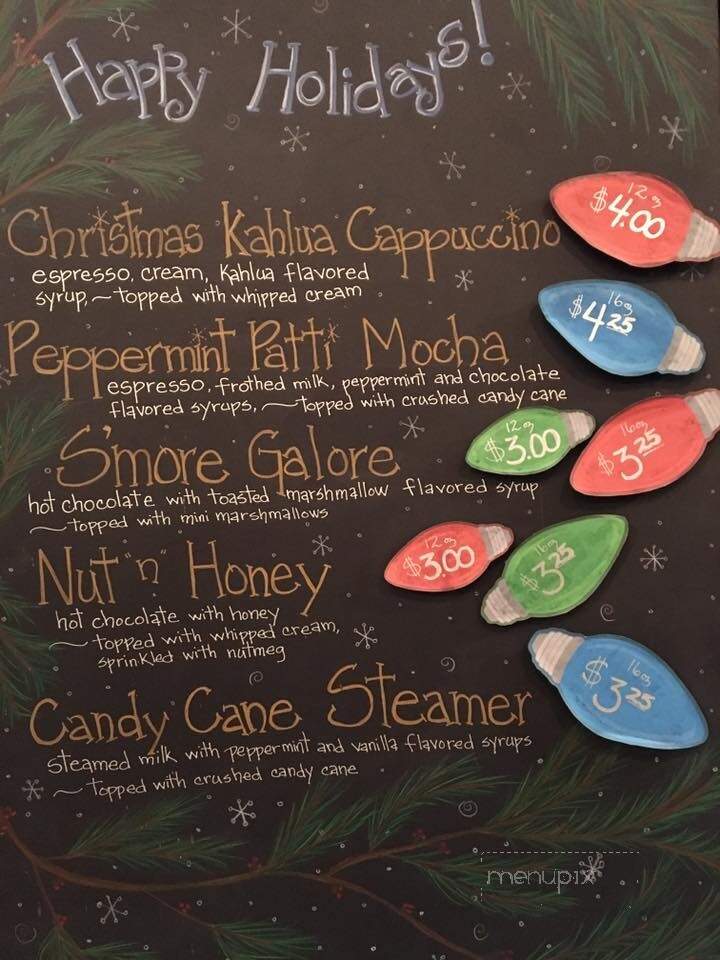 Happy Holidays!
Christmas Kahlua Cappuccino
12 oz
$4.00
espresso, cream, Kahlua flavored
syrup, ~ topped with whipped cream
16 oz
$4.25
Peppermint Patti Mocha
espresso, frothed milk, peppermint and chocolate
flavored syrups, ~ topped with crushed candy cane
S'more Galore
12 oz
$3.00
16 oz
$3.25
hot chocolate with toasted marshmallow flavored syrup
~ topped with mini marshmallows
Nut "n" Honey
12 oz
$3.00
16 oz
$3.25
hot chocolate with honey
~ topped with whipped cream,
sprinkled with nutmeg
Candy Cane Steamer
16 oz
$3.25
steamed milk with peppermint and vanilla flavored syrups
~ topped with crushed candy cane
menupix